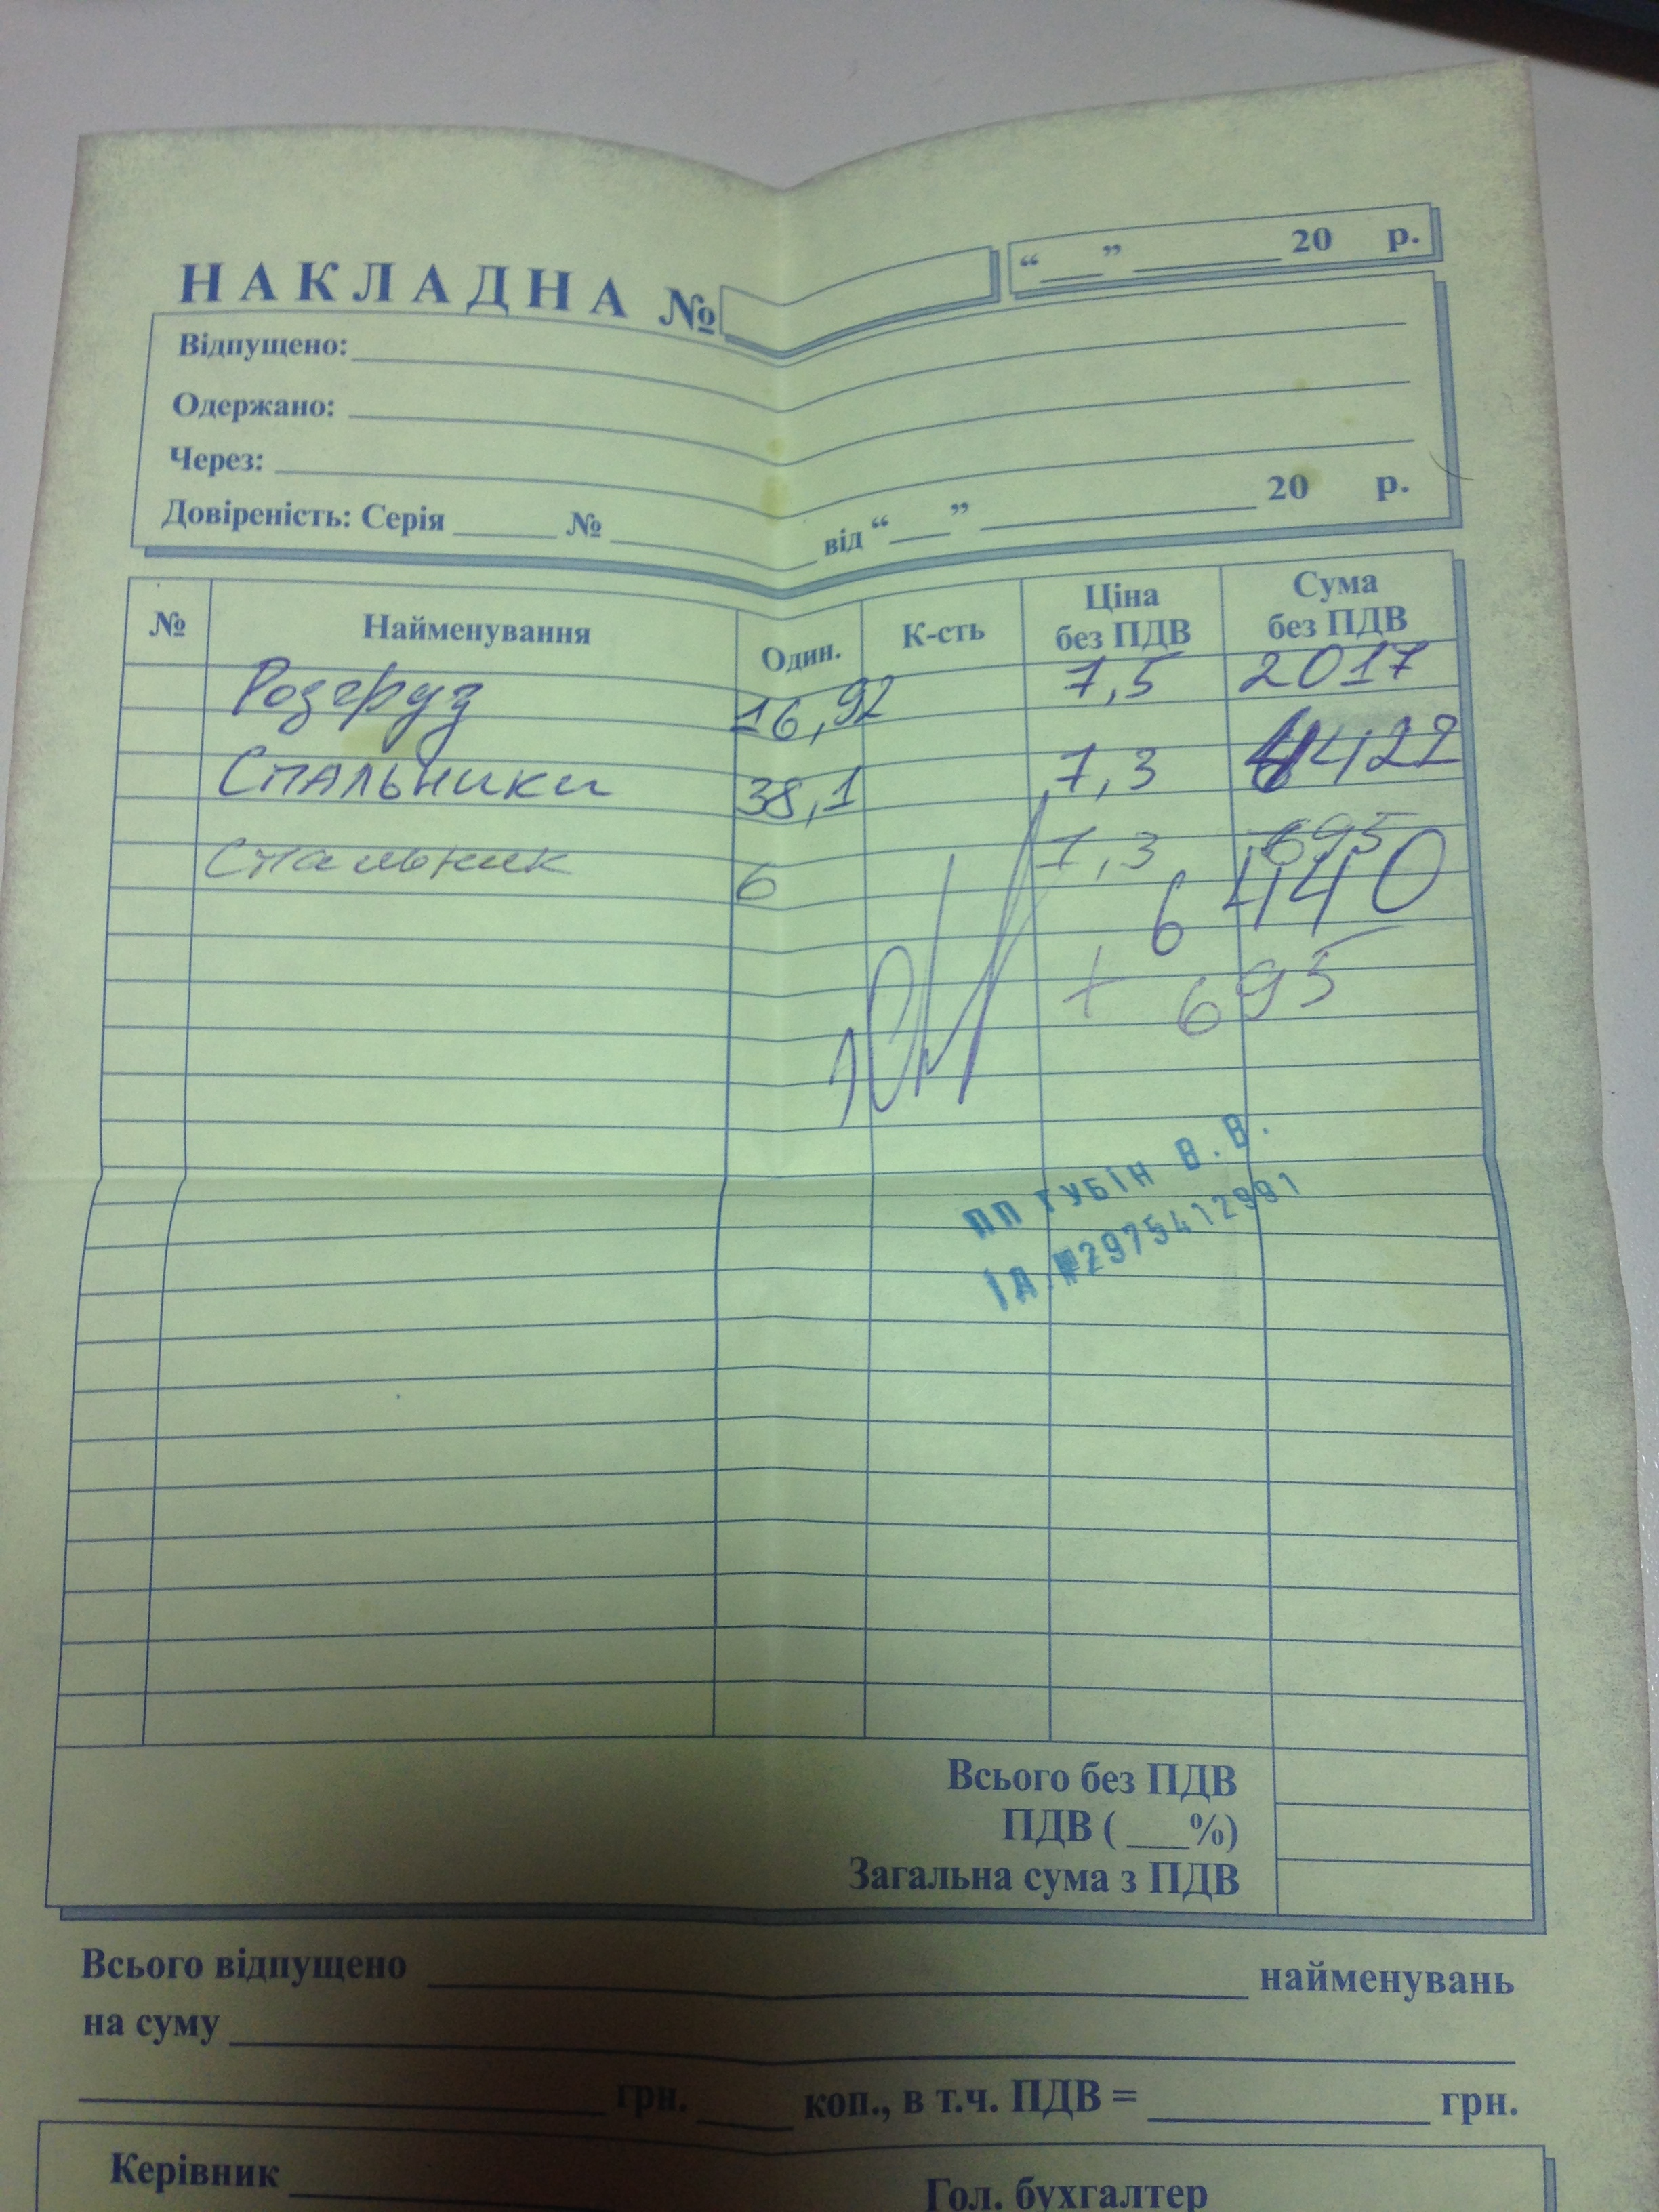 НАКЛАДНА №
“___” ________ 20 р.
Відпущено:
Одержано:
Через:
Довіреність: Серія ______ № ______ від “___” ________ 20 р.
№ Найменування Один. К-сть Ціна без ПДВ Сума без ПДВ
Розгруз 16,92 7,5 2017
Спальники 38,1 7,3 4422
Спальник 6 7,3 695
6440
+ 695
ПП ГУБІН В.В.
ІД.№2975412991
Всього без ПДВ
ПДВ ( ___%)
Загальна сума з ПДВ
Всього відпущено ________ найменувань
на суму
________ грн. ____ коп., в т.ч. ПДВ = ________ грн.
Керівник ________ Гол. бухгалтер